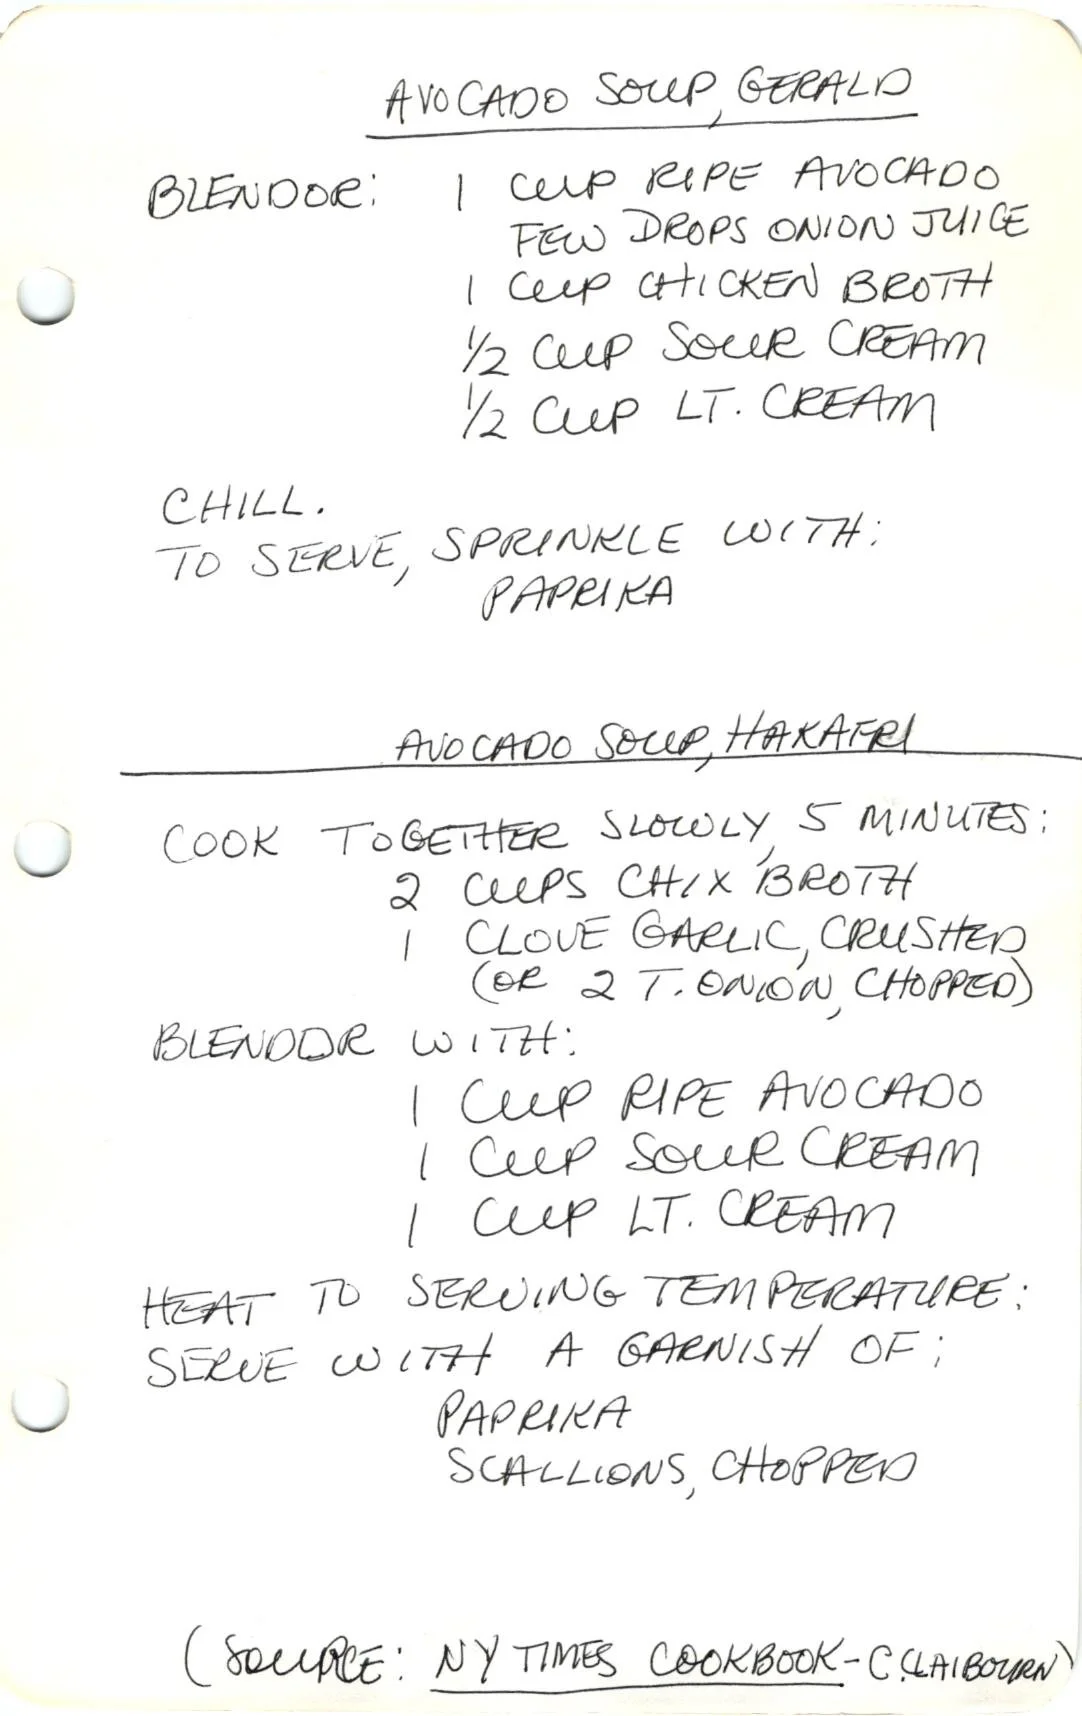 AVOCADO SOUP, GERALD
BLENDOR: 1 CUP RIPE AVOCADO
FEW DROPS ONION JUICE
1 CUP CHICKEN BROTH
1/2 CUP SOUR CREAM
1/2 CUP LT. CREAM
CHILL.
TO SERVE, SPRINKLE WITH:
PAPRIKA
AVOCADO SOUP, HAKAFRI
COOK TOGETHER SLOWLY, 5 MINUTES:
2 CUPS CHIX BROTH
1 CLOVE GARLIC, CRUSHED
(OR 2 T. ONION, CHOPPED)
BLENDOR WITH:
1 CUP RIPE AVOCADO
1 CUP SOUR CREAM
1 CUP LT. CREAM
HEAT TO SERVING TEMPERATURE:
SERVE WITH A GARNISH OF:
PAPRIKA
SCALLIONS, CHOPPED
(SOURCE: NY TIMES COOKBOOK - C. CLAIBOURN)